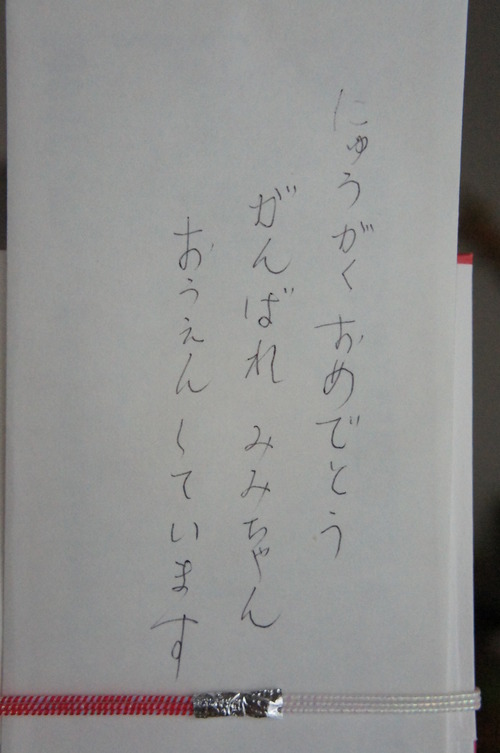 にゅうがく おめでとう
がんばれ みみちゃん
おうえん しています